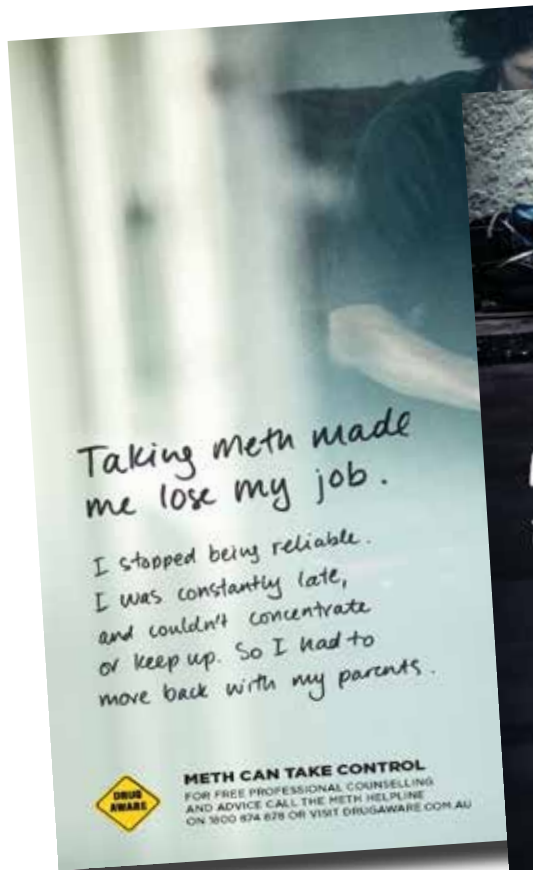 Taking meth made
me lose my job.
I stopped being reliable.
I was constantly late,
and couldn't concentrate
or keep up. So I had to
move back with my parents.
DRUG
AWARE
METH CAN TAKE CONTROL
FOR FREE PROFESSIONAL COUNSELLING
AND ADVICE CALL THE METH HELPLINE
ON 1800 874 878 OR VISIT DRUGAWARE.COM.AU